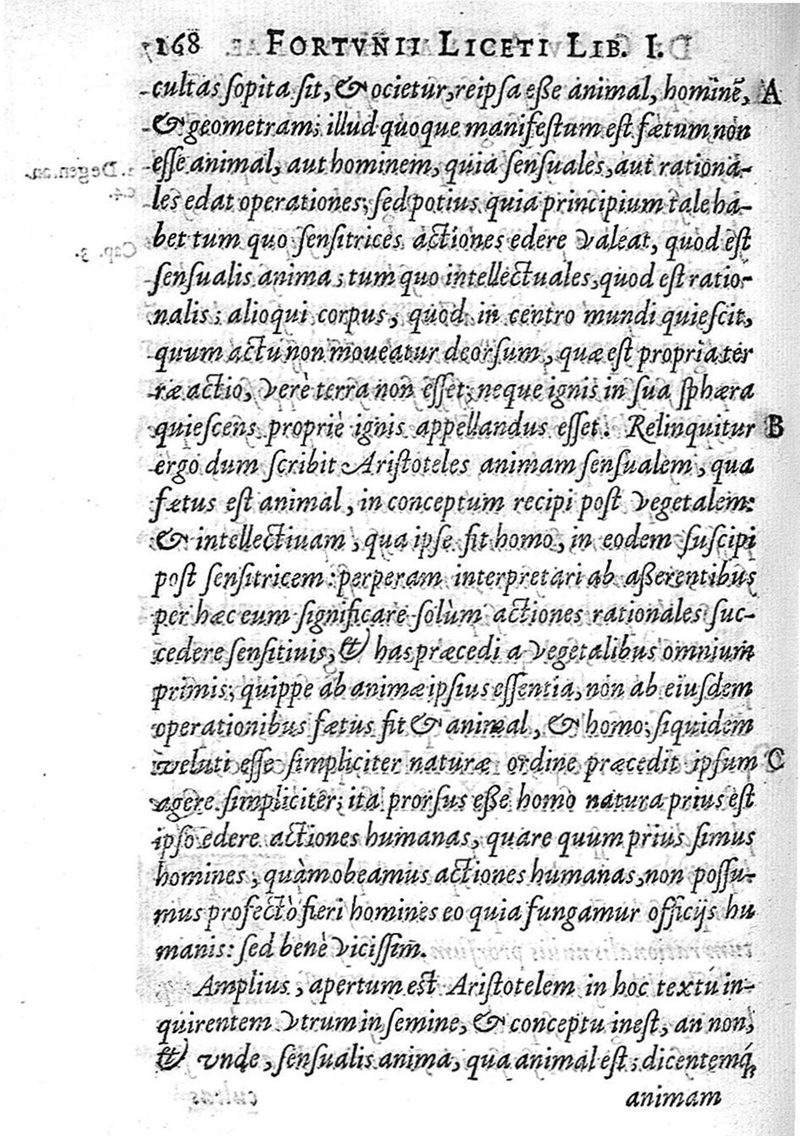 168 FORTVNII LICETI LIB. I.
cultas sopita sit, & ocietur, reipsa eße animal, hominẽ, A
& geometram; illud quoque manifestum est fætum non
esse animal, aut hominem, quia sensuales, aut rationa-
les edat operationes; sed potius quia principium tale ha-
bet tum quo sensitrices actiones edere valeat, quod est
sensualis anima; tum quo intellectuales, quod est ratio-
nalis; alioqui corpus, quod in centro mundi quiescit,
quum actu non moueatur deorsum, quæ est propria ter
ræ actio, verè terra non esset; neque ignis in sua sphæra
quiescens propriè ignis appellandus esset. Relinquitur B
ergo dum scribit Aristoteles animam sensualem, qua
fætus est animal, in conceptum recipi post vegetalem:
& intellectiuam, qua ipse fit homo, in eodem suscipi
post sensitricem: perperam interpretari ab aßerentibus
per hæc eum significare solùm actiones rationales suc-
cedere sensitiuis, & has præcedi a vegetalibus omnium
primis; quippe ab animæ ipsius essentia, non ab eiusdem
operationibus fætus fit & animal, & homo; siquidem
veluti esse simpliciter naturæ ordine præcedit ipsum C
agere simpliciter; ita prorsus eße homo natura prius est
ipso edere actiones humanas, quare quum prius simus
homines, quàm obeamus actiones humanas, non possu-
mus profectò fieri homines eo quia fungamur officijs hu
manis: sed benè vicissim.
Amplius, apertum est Aristotelem in hoc textu in-
quirentem vtrum in semine, & conceptu inest, an non,
& vnde, sensualis anima, qua animal est; dicentemq́;
animam